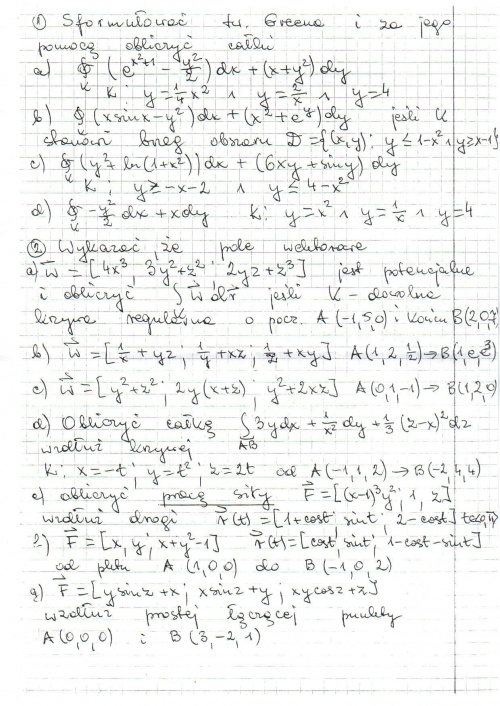 ① Sformułować tw. Greena i za jego
pomocą obliczyć całki
a) ∮_K (e^{x²+1} - y²/2) dx + (x+y²) dy
K: y = 1/4 x² ∧ y = 2/x ∧ y = 4
b) ∮_K (x sin x - y²) dx + (x² + e^y) dy jeśli K
stanowi brzeg obszaru D = {(x,y): y ≤ 1-x² ∧ y ≥ x-1}
c) ∮_K (y² + ln(1+x²)) dx + (6xy + sin y) dy
K: y ≥ -x-2 ∧ y ≤ 4-x²
d) ∮_K -y²/2 dx + x dy K: y = x² ∧ y = 1/x ∧ y = 4
② Wykazać, że pole wektorowe
a) W⃗ = [4x³, 3y²+z²; 2yz+z³] jest potencjalne
i obliczyć ∫_K W⃗ dr⃗ jeśli K - dowolna
krzywa regularna o pocz. A(-1,5,0) i końcu
b) W⃗ = [1/x + yz; 1/y + xz; 1/z + xy] A(1,2,1/2) → B
c) W⃗ = [y²+z²; 2y(x+z); y²+2xz] A(0,1,-1) → B(1,2,0)
d) Obliczyć całkę ∫_{AB} 3y dx + 1/x² dy + 1/3 (z-x)² dz
wzdłuż krzywej
K: x = -t; y = t²; z = 2t od A(-1,1,2) → B(-2,4,4)
e) obliczyć pracę siły F⃗ = [(x-1)³y²; 1, z]
wzdłuż drogi r⃗(t) = [1+cos t; sin t; 2-cos t]
f) F⃗ = [x, y; x+y²-1] r⃗(t) = [cos t, sin t; 1-cos t-sin t]
od pktu A(1,0,0) do B(-1,0,2)
g) F⃗ = [y sin z + x; x sin z + y; xy cos z + z]
wzdłuż prostej łączącej punkty
A(0,0,0) i B(3,-2,1)